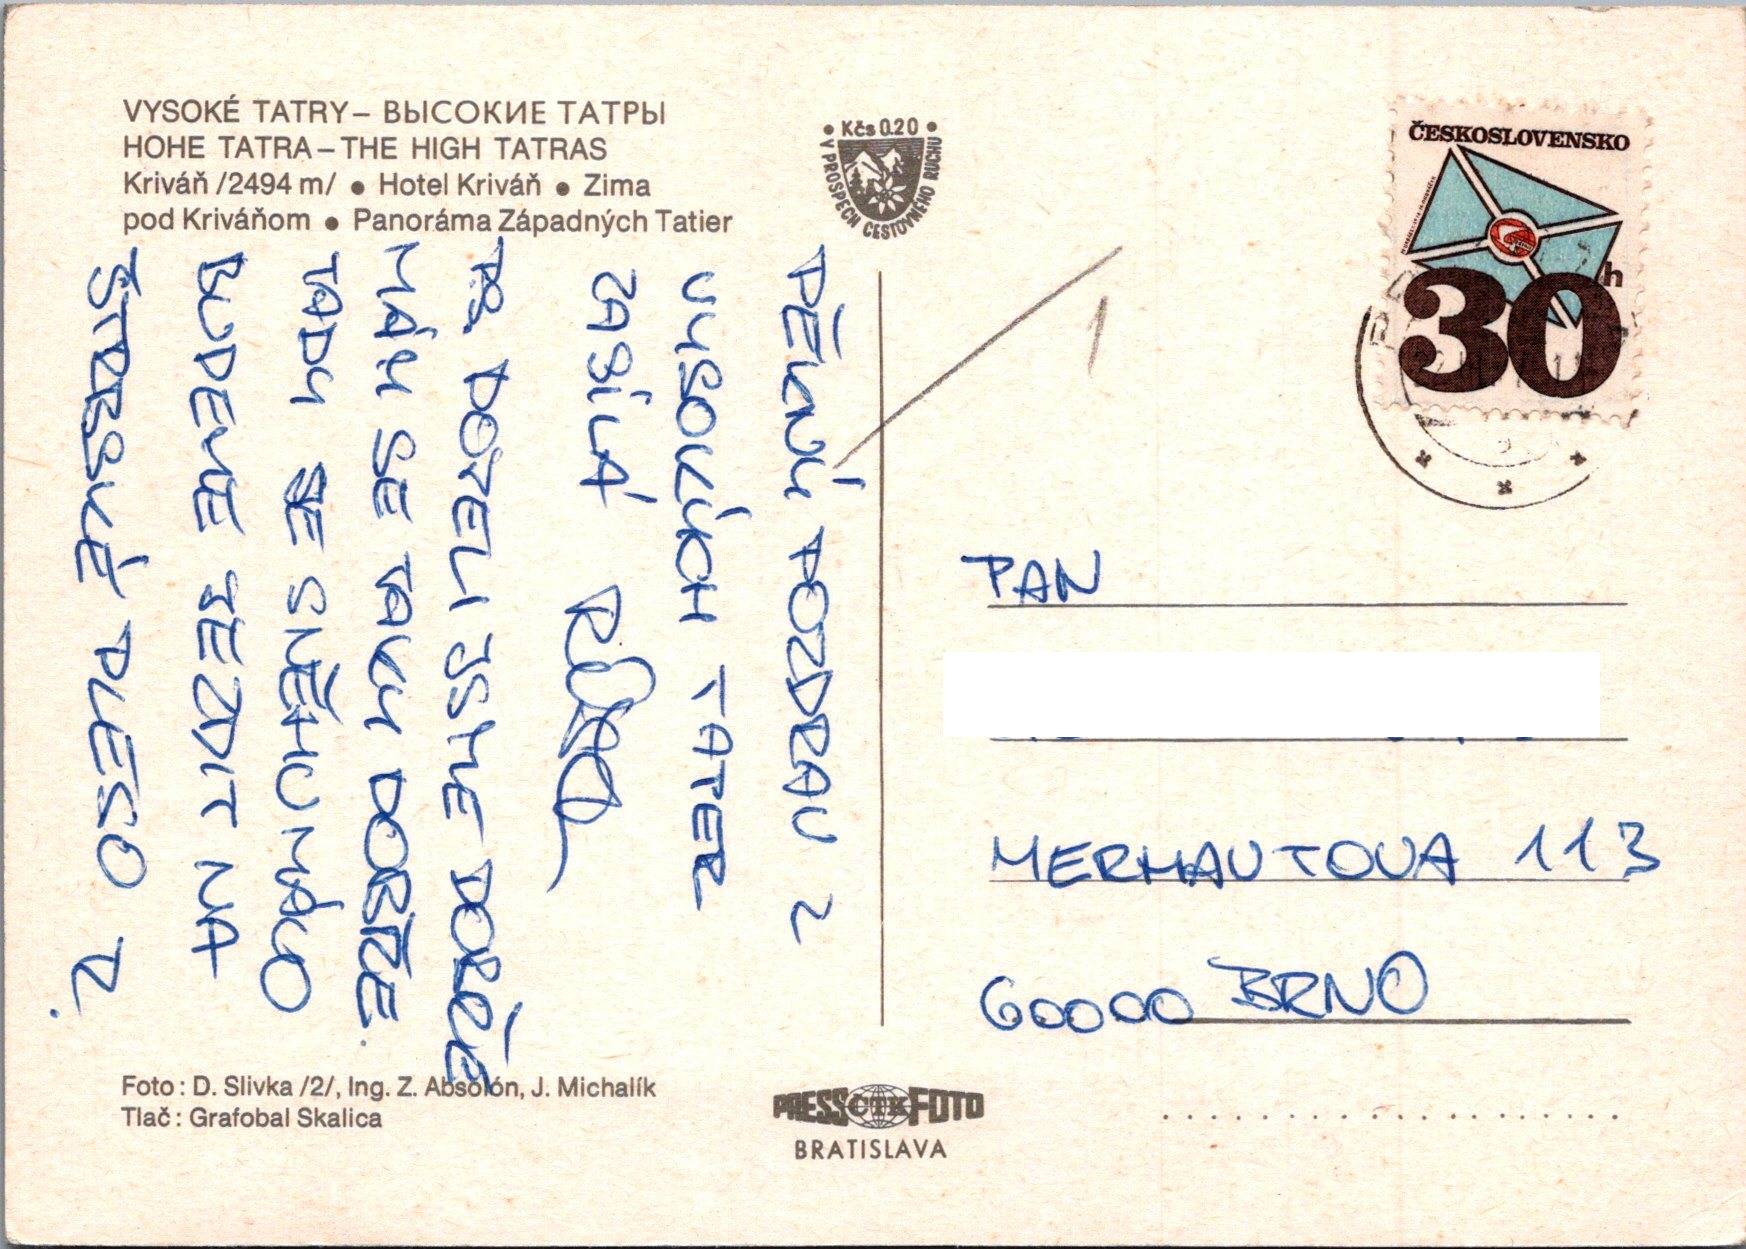 VYSOKÉ TATRY – ВЫСОКИЕ ТАТРЫ
HOHE TATRA – THE HIGH TATRAS
Kriváň /2494 m/ • Hotel Kriváň • Zima
pod Kriváňom • Panoráma Západných Tatier
• Kčs 0.20 •
V PROSPECH CESTOVNÉHO RUCHU
ČESKOSLOVENSKO
30 h
1
PĚKNÝ POZDRAV Z
VYSOKÝCH TATER
ZASÍLÁ
P.S. DOJELI JSME DOBŘE
MÁM SE TAKY DOBŘE.
TADY JE SNĚHU MÁLO
BUDEME JEZDIT NA
ŠTRBSKÉ PLESO R.
PAN
MERHAUTOVA 113
60000 BRNO
Foto: D. Slivka /2/, Ing. Z. Absolón, J. Michalík
Tlač: Grafobal Skalica
PRESS ČTK FOTO
BRATISLAVA